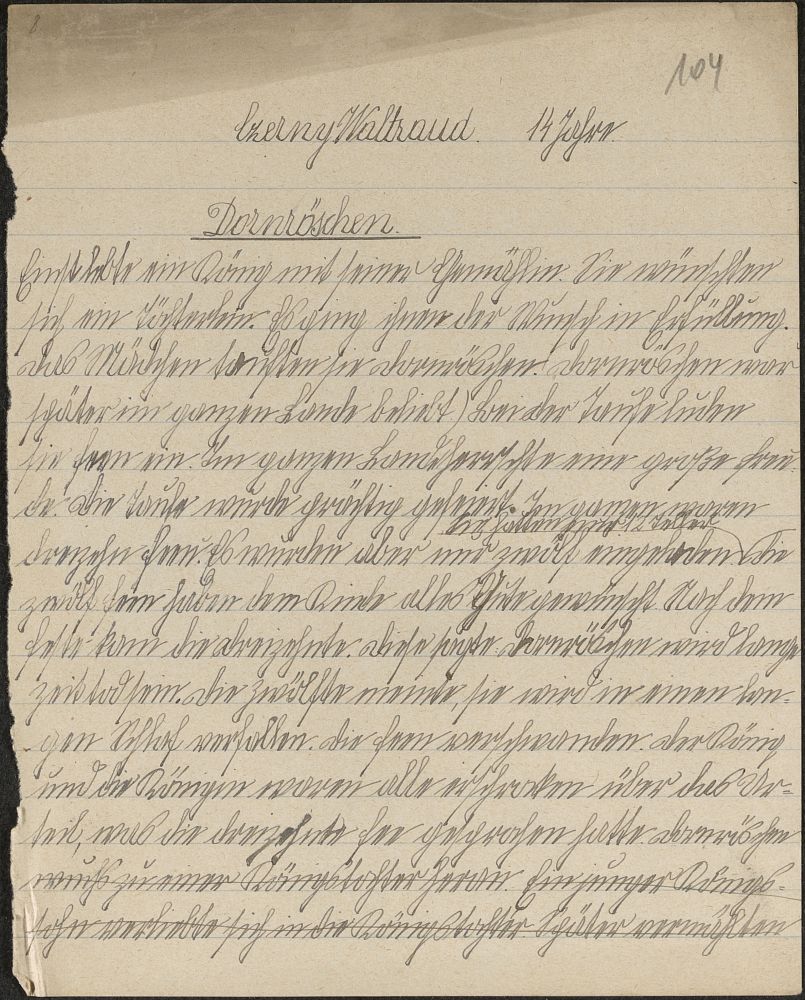 8
104
Czerny Waltraud. 14 Jahre
Dornröschen.
Einst lebte ein König mit seiner Gemahlin. Sie wünschten
sich ein Töchterlein. Es ging ihnen der Wunsch in Erfüllung.
Das Mädchen tauften sie Dornröschen. Dornröschen war
später im ganzen Lande beliebt) bei der Taufe luden
sie Feen ein. Im ganzen Land herrschte eine große Freu-
de. Die Taufe wurde prächtig gefeiert. Im ganzen waren
Sie hatten nur 12 Teller
dreizehn Feen. Es wurden aber nur zwölf eingeladen. Die
zwölf Feen haben dem Kinde alles Gute gewünscht. Nach dem
Feste kam die dreizehnte. Diese sagte Dornröschen wird lange
Zeit tod sein. Die zwölfte meinte, sie wird in einen lan-
gen Schlaf verfallen. Die Feen verschwanden. Der König
und die Königin waren alle erschrocken über das Ur=
teil, was die dreizehnte Fee gesprochen hatte. Dornröschen
wuchs zu einer Königstochter heran. Ein junger Königs-
sohn verliebte sich in die Königstochter. Später vermählten